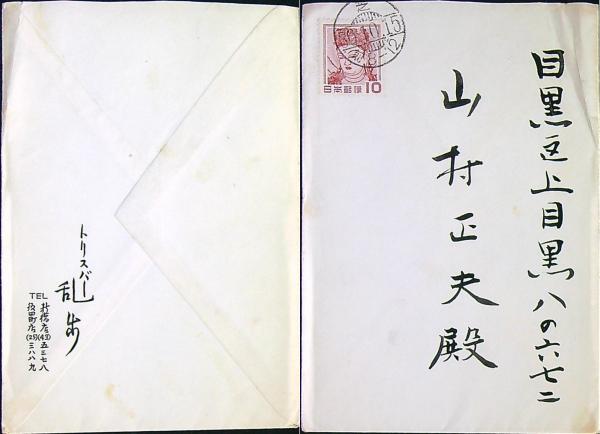 トリスバー
乱歩
TEL 新橋店(43)五三七八
夜間店(25)三八八九
日本郵便 10
目黒区上目黒八の六七二
山村正夫殿